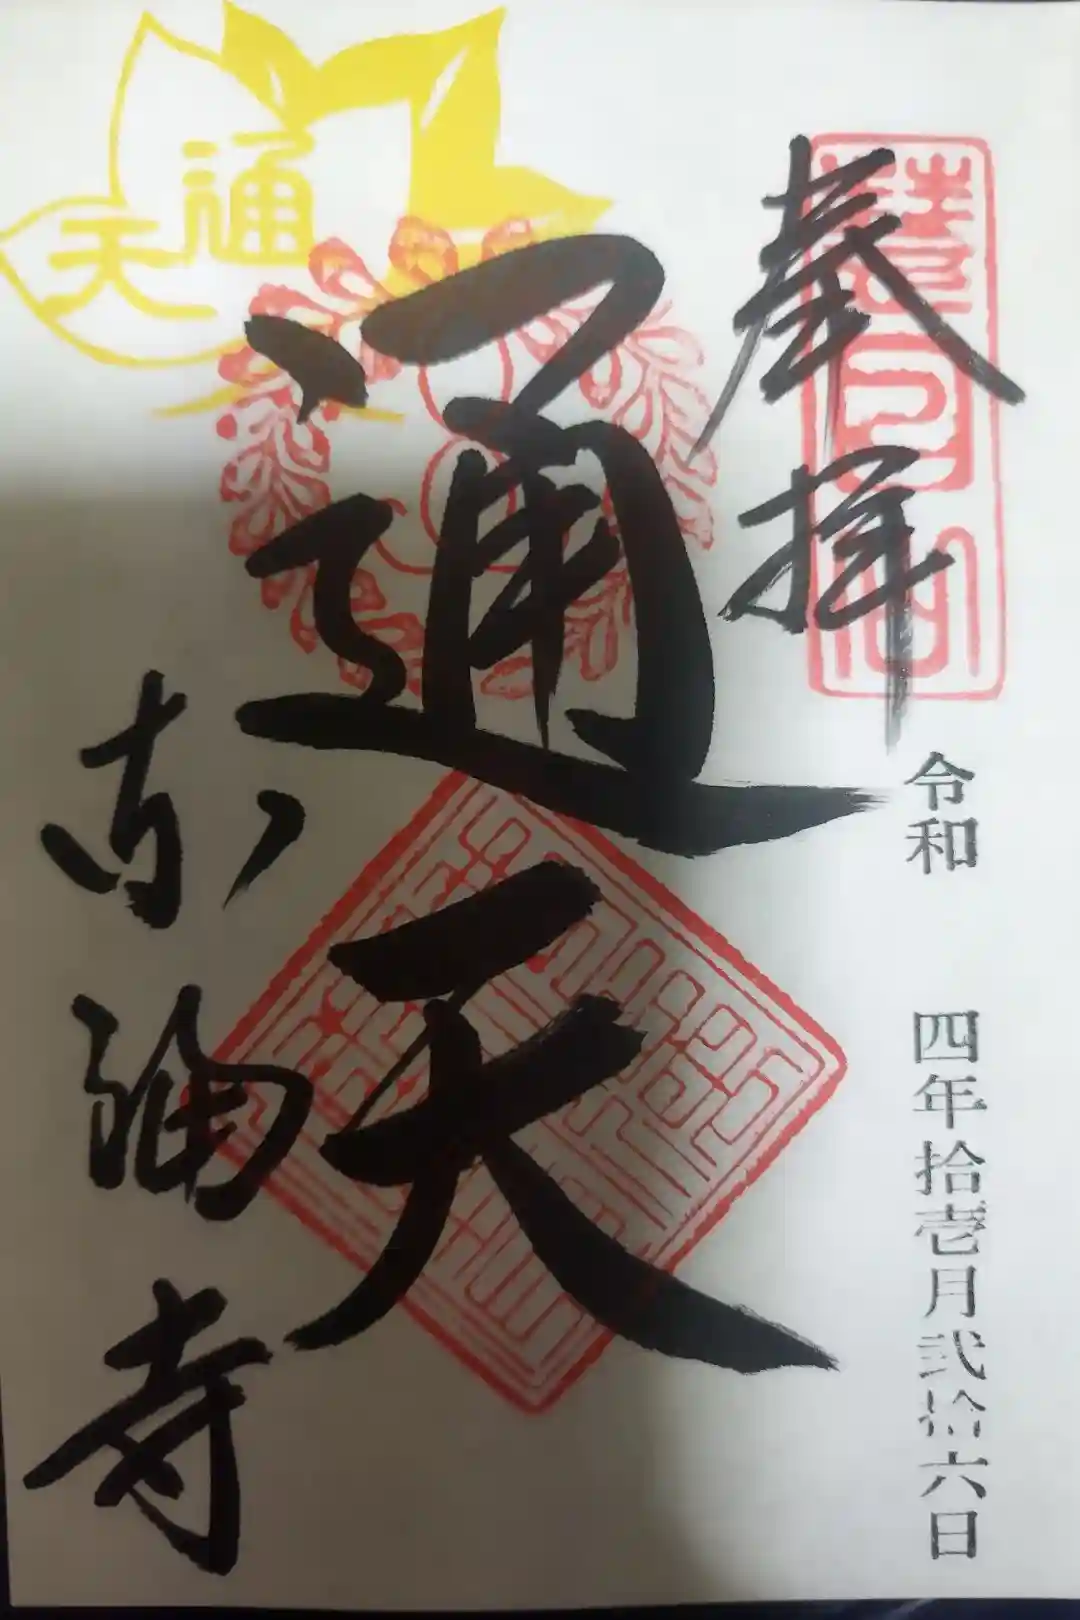 奉拝
慧日山
令和 四年拾壱月弐拾六日
通天
通天
東福寺